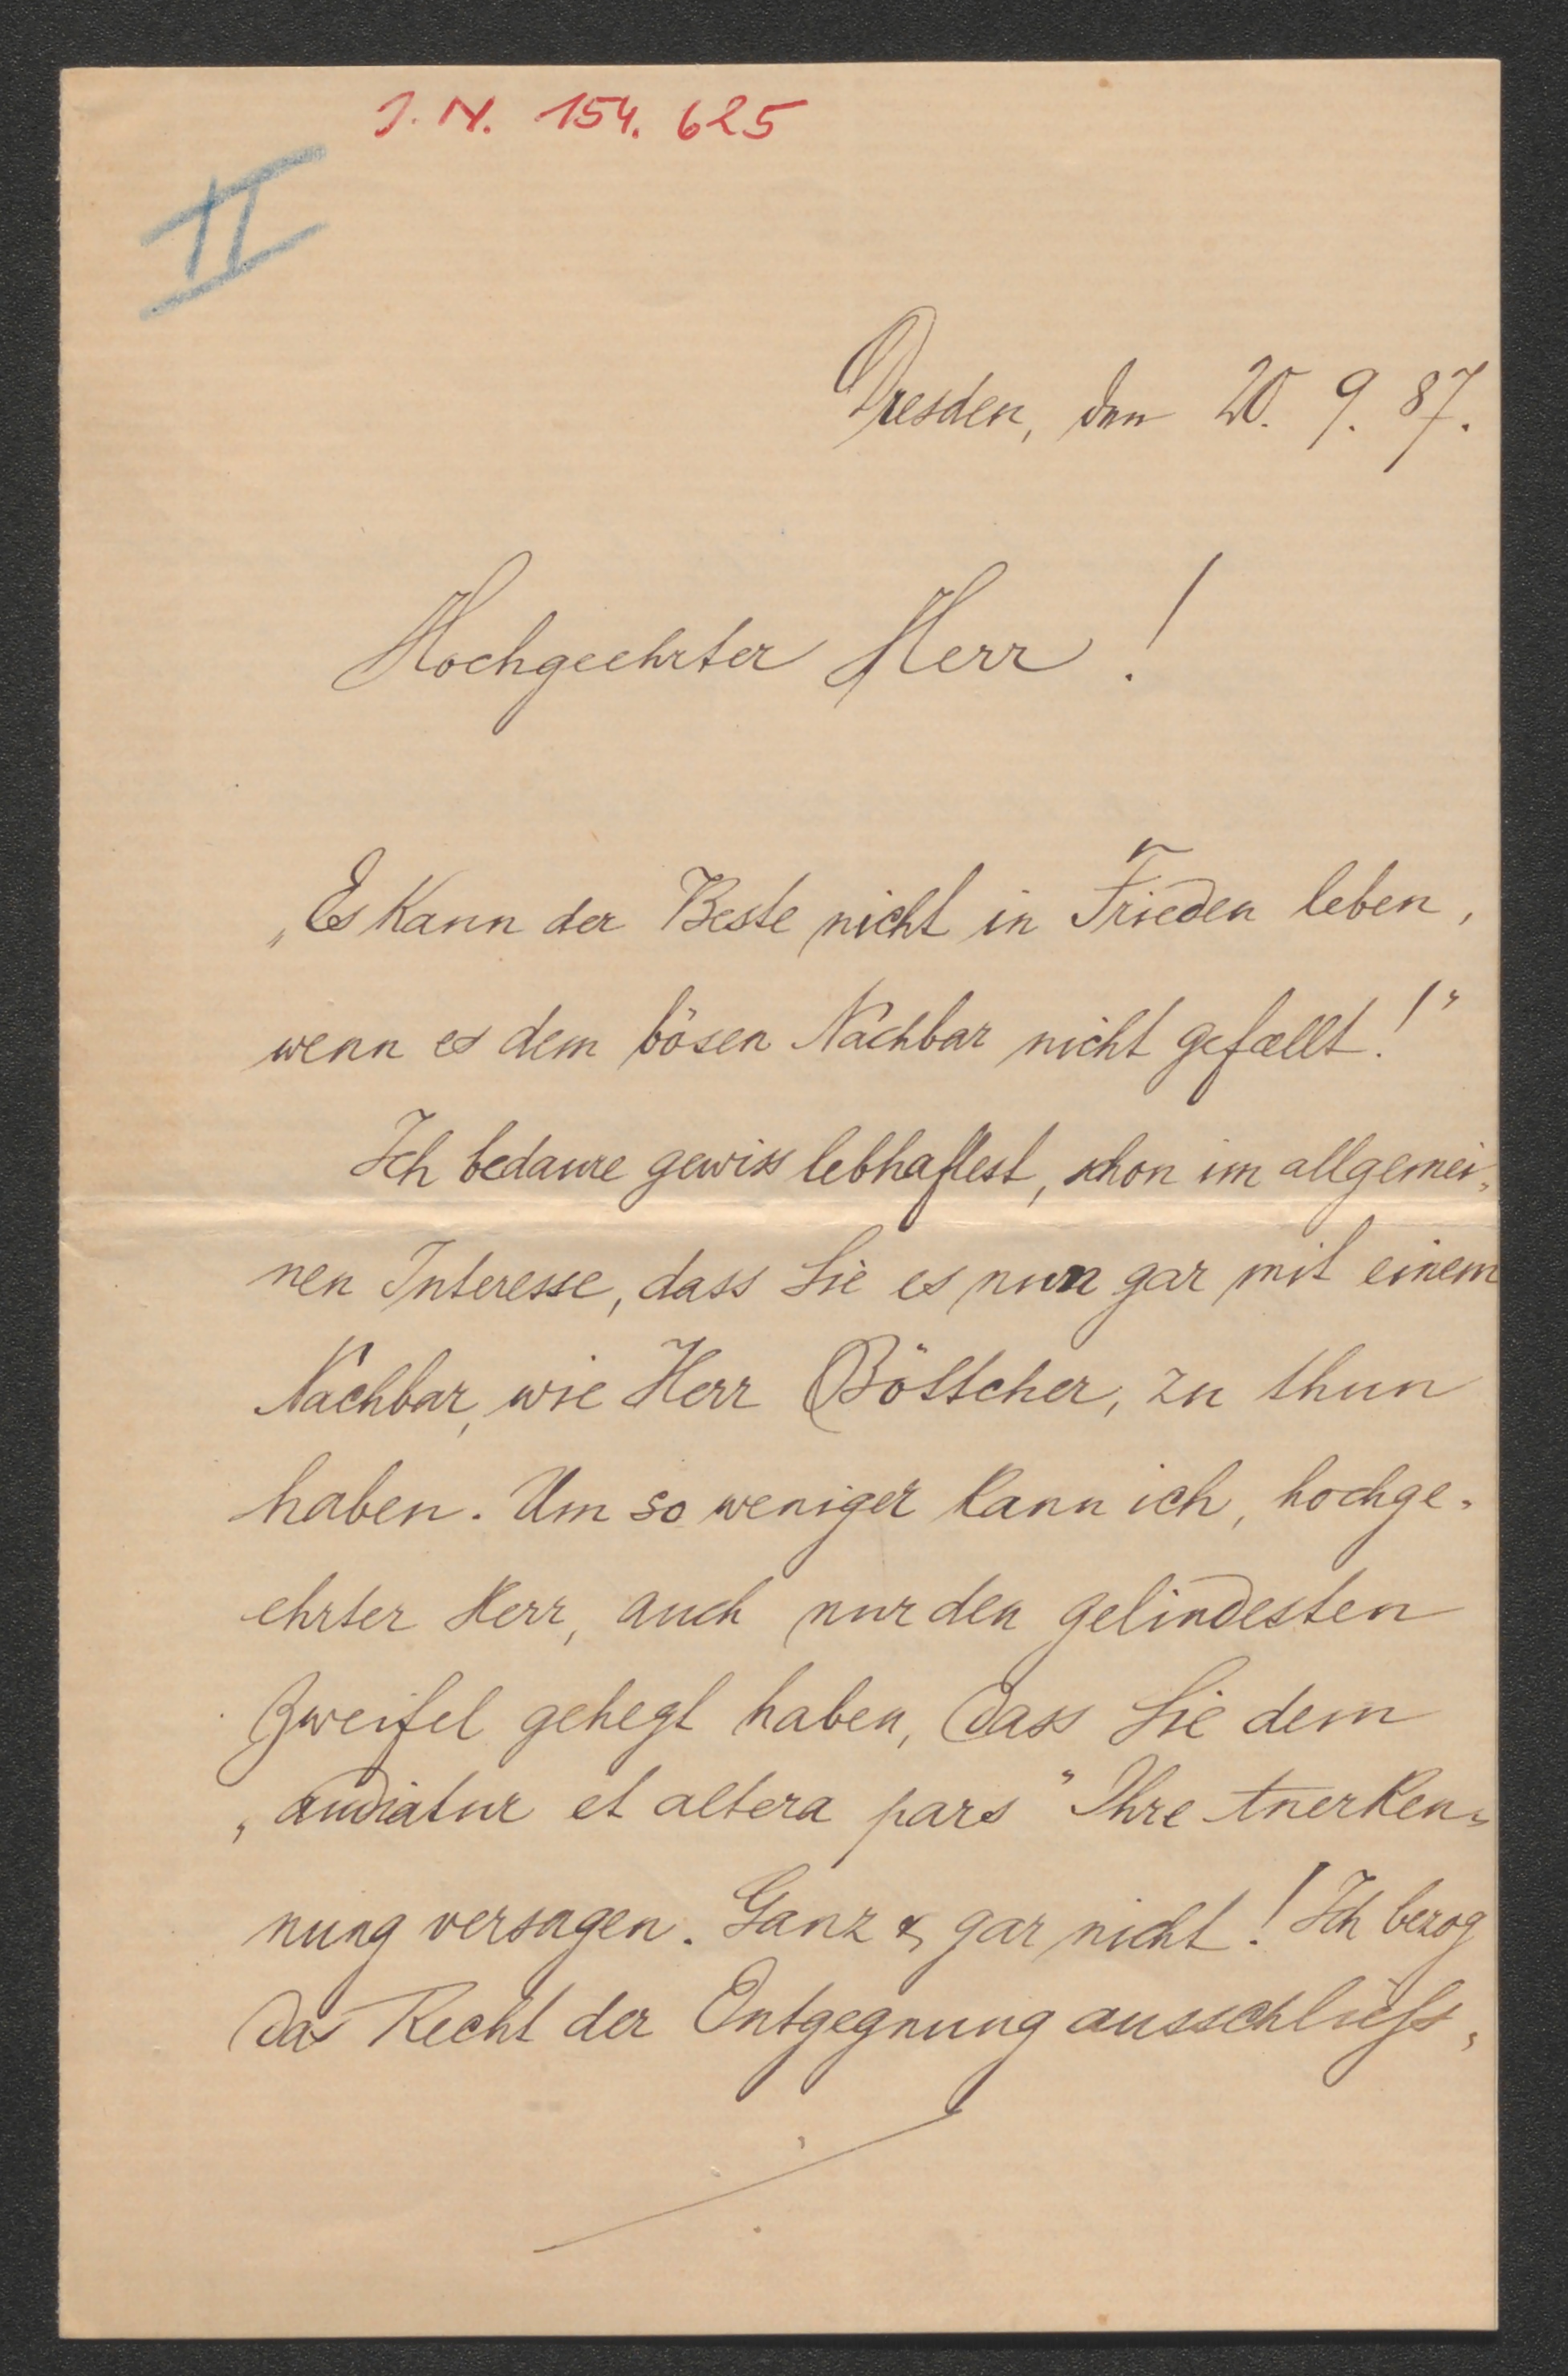 J. N. 154. 625
II
Dresden, den 20. 9. 87.
Hochgeehrter Herr!
„Es kann der Beste nicht in Frieden leben,
wenn es dem bösen Nachbar nicht gefællt!"
Ich bedaure gewiss lebhaftest, schon im allgemei-
nen Interesse, dass Sie es nun gar mit einem
Nachbar, wie Herr Böttcher, zu thun
haben. Um so weniger kann ich, hochge-
ehrter Herr, auch nur den gelindesten
Zweifel gehegt haben, dass Sie dem
„audiatur et altera pars" Ihre Anerken-
nung versagen. Ganz & gar nicht! Ich bezog
das Recht der Entgegnung ausschliefs-